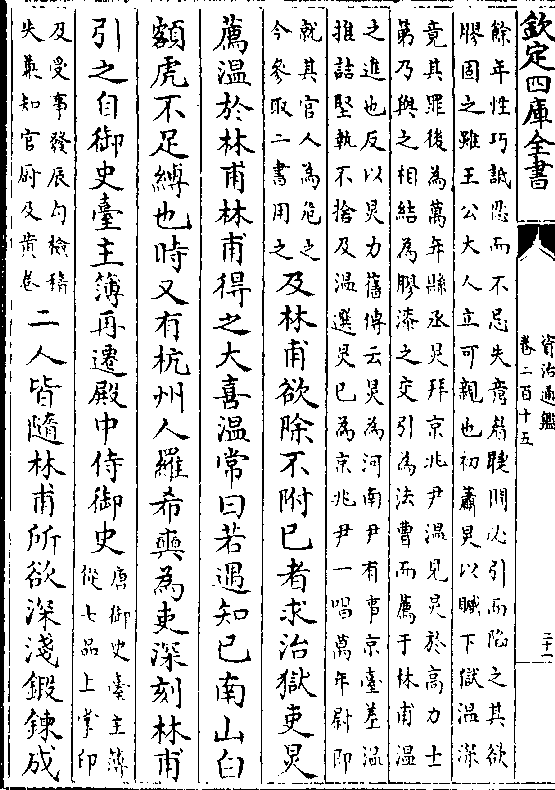 欽定四庫全書
資治通鑑
卷二百十五
三十一
餘年性巧詆忍而不忌失意眉睫間必引而陷之其欲
膠固之雖王公大人立可親也初蕭炅以贓下獄溫深
竟其罪後為萬年縣丞炅拜京兆尹溫見炅於高力士
第乃與之相結為膠漆之交引為法曹而薦于林甫溫
之進也反以炅力舊傳云炅為河南尹有事京臺差溫
推詰堅執不捨及溫選炅已為京兆尹一唱萬年尉即
就其官人為危之
今參取二書用之
及林甫欲除不附已者求治獄吏炅
薦溫於林甫林甫得之大喜溫常曰若遇知已南山白
額虎不足縛也時又有杭州人羅希奭為吏深刻林甫
引之自御史臺主簿再遷殿中侍御史
唐御史臺主簿
從七品上掌印
及受事發辰勾檢稽
失兼知官廚及黃卷
二人皆隨林甫所欲深淺鍛鍊成